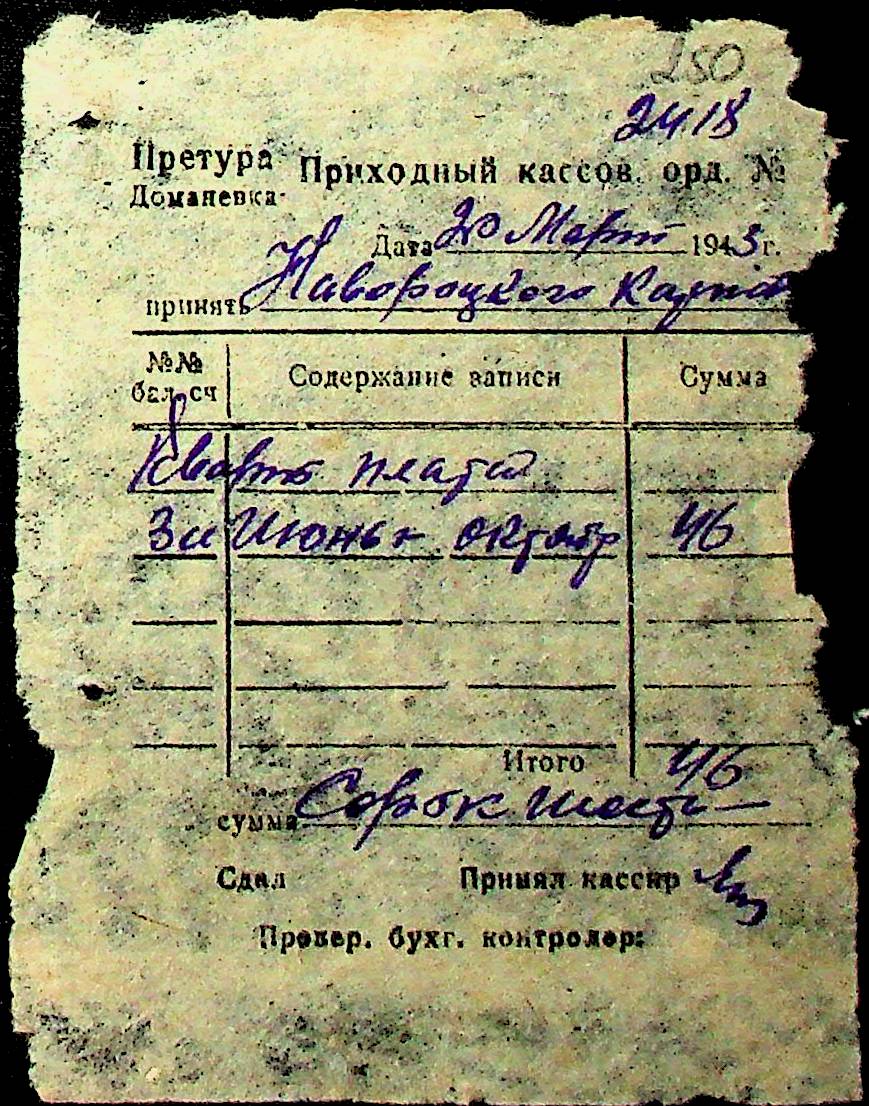 250
2418
Претура Приходный кассов. орд. №
Доманевка
Дата 20 Март 1943 г.
принять Навороцкого
№№ бал. сч Содержание записи Сумма
Кварт плата
За Июнь октябр 46
Итого 46
сумма Сорок шесть
Сдал Принял кассир
Провер. бухг. контролер: